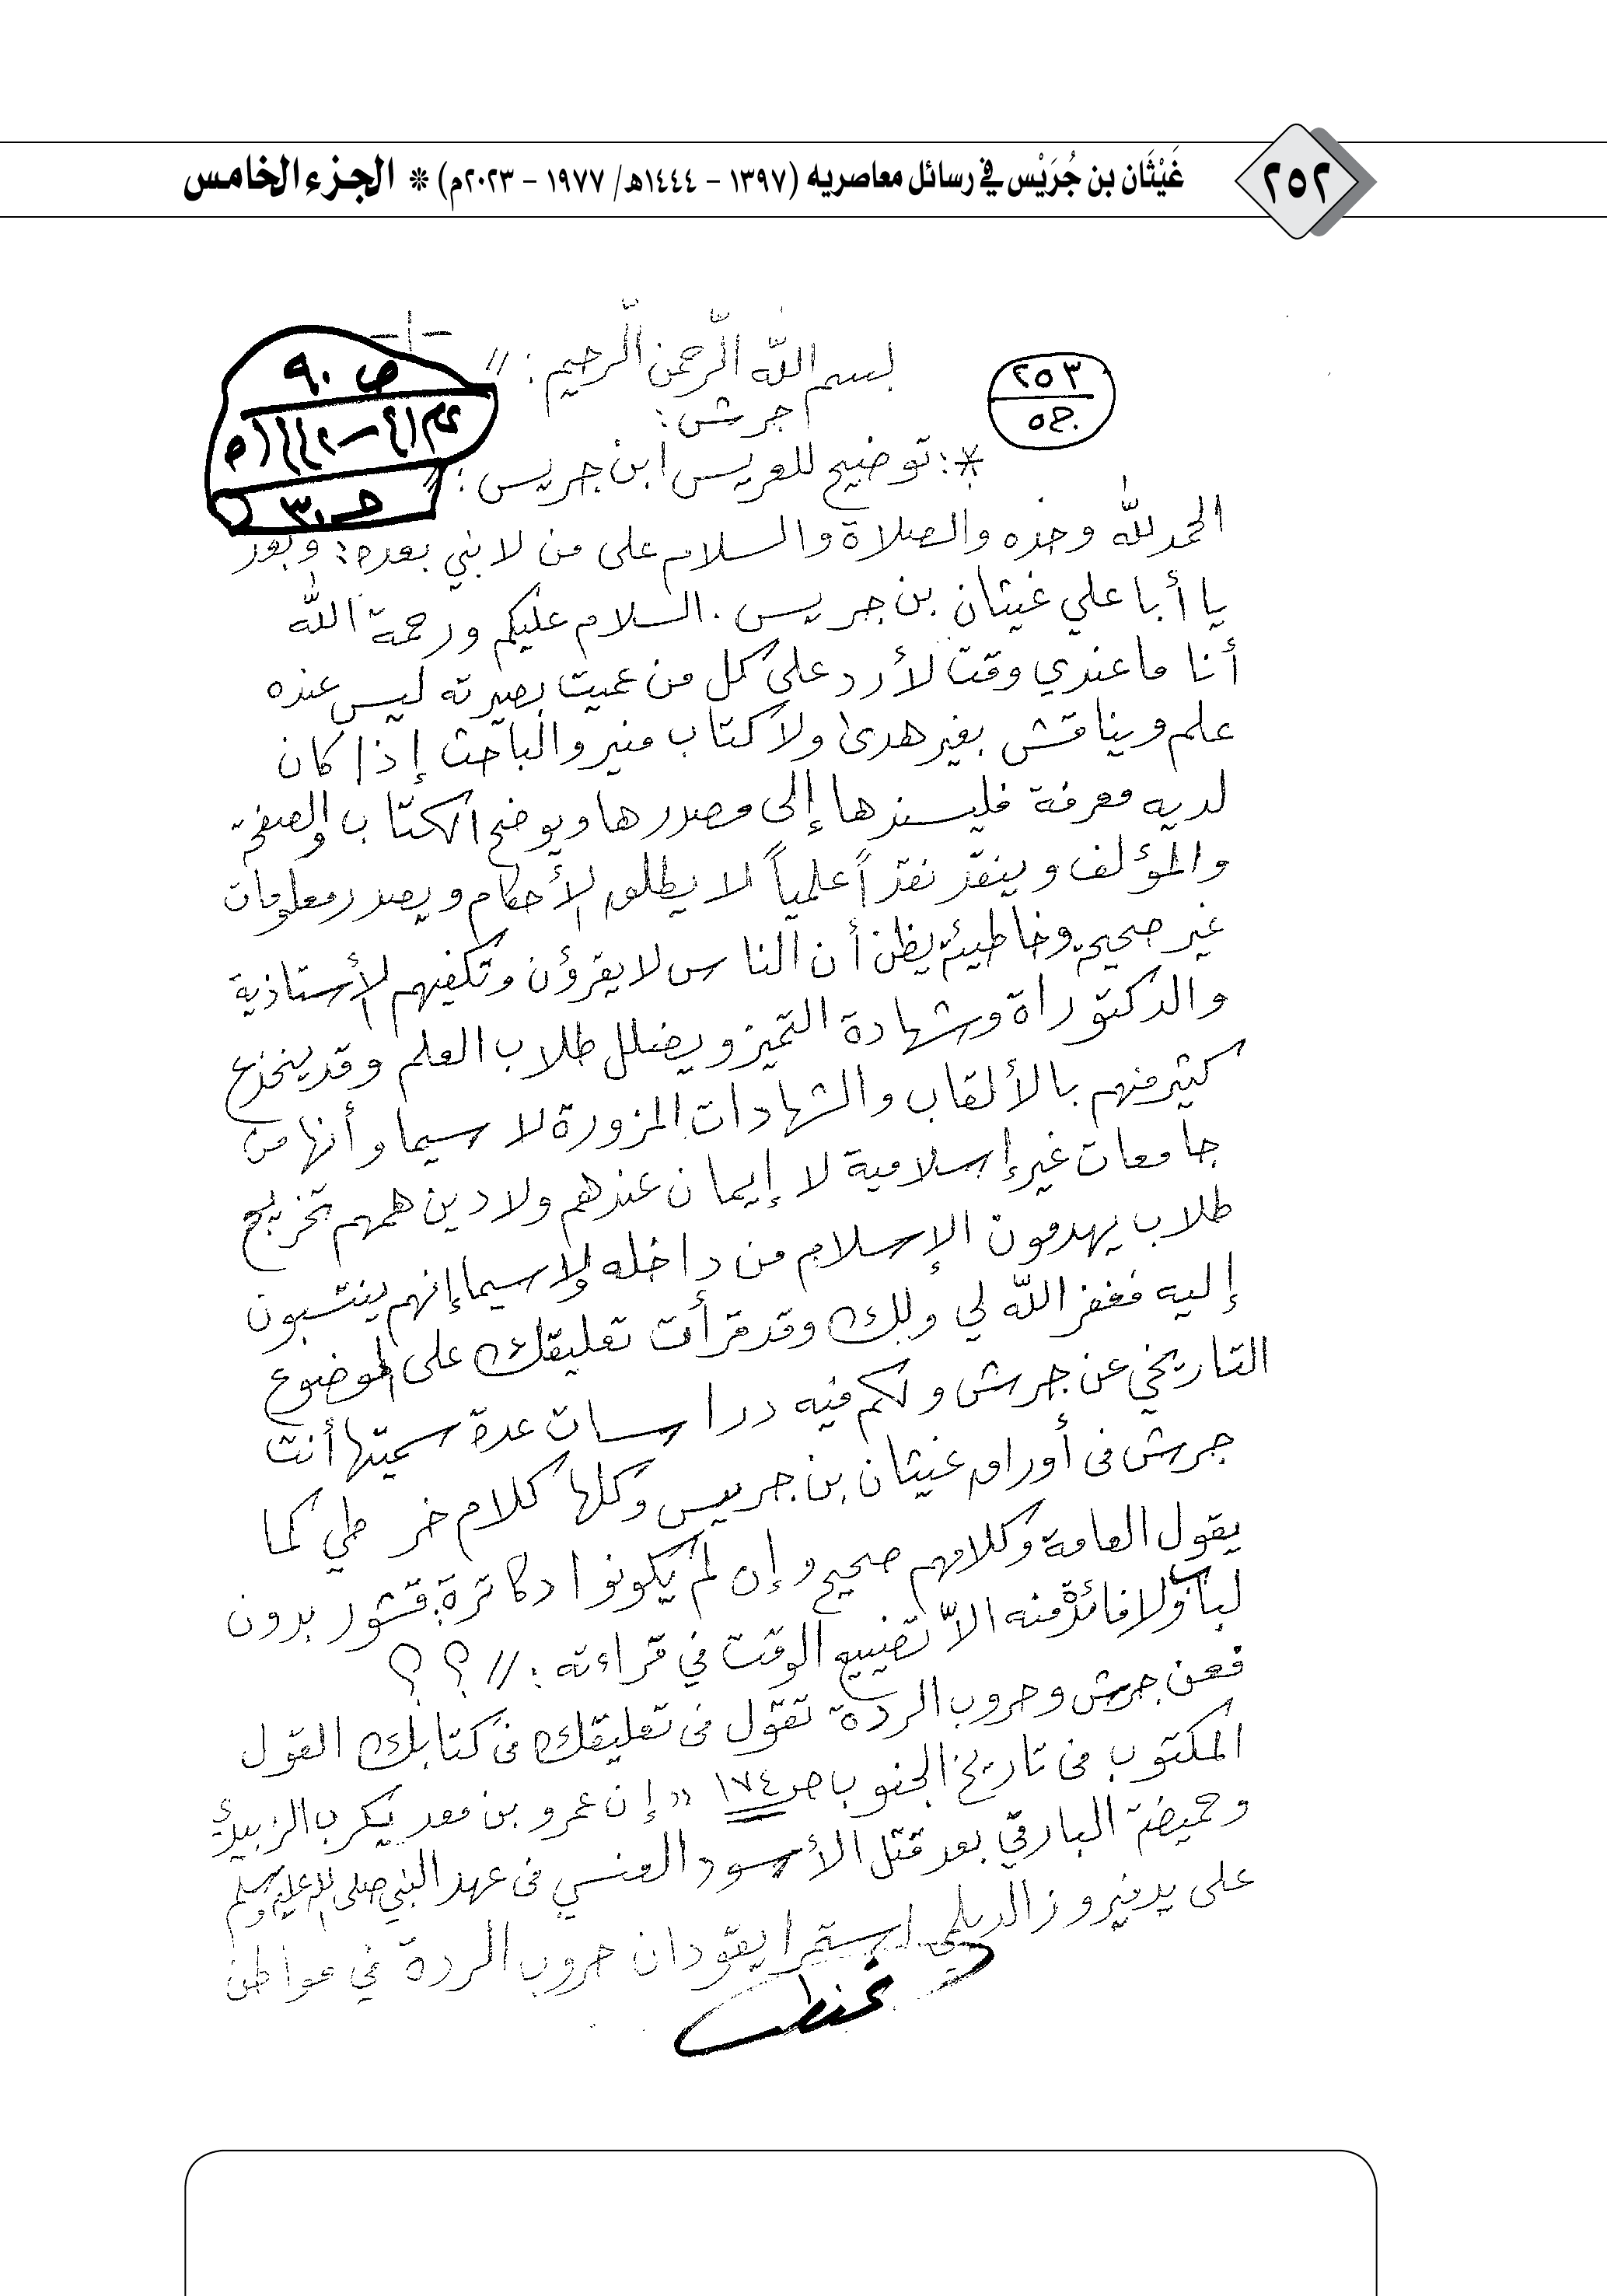 ٢٥٢
غَيْثَان بن جُرَيْس في رسائل معاصريه (١٣٩٧ - ١٤٤٤هـ/ ١٩٧٧ - ٢٠٢٣م) * الجزء الخامس
-١-
بسم الله الرّحمن الرّحيم: //
٢٥٣
ص ٩٠
جرش:
ج٥
*: توضيح للعريس ابن جريس: //
حـ ٣٠
الحمد لله وحده والصلاة والسلام على من لا نبي بعده: وبعد
يا أبا علي غيثان بن جريس. السلام عليكم ورحمة الله
أنا ما عندي وقت لأرد على كل من عميت بصيرته ليس عنده
علم ويناقش بغير هدى ولا كتاب منير والباحث إذا كان
لديه معرفة فليسندها إلى مصدرها ويوضح الكتاب والصفحة
والمؤلف وينقد نقداً علمياً لا يطلق الأحكام ويصدر معلومات
غير صحيحة وخاطيئة يظن أن الناس لا يقرؤن وتكفيهم الأستاذية
والدكتوراة وشهادة التميز ويضلل طلاب العلم وقد ينخدع
كثير منهم بالألقاب والشهادات المزورة لا سيما وأنها من
جامعات غير إسلامية لا إيمان عندهم ولا دين همهم تخريج
طلاب يهدمون الإسلام من داخله ولا سيما إنهم ينتسبون
إليه فغفر الله لي ولك وقد قرأت تعليقك على الموضوع
التاريخي عن جرش ولكم فيه دراسات عدة سميتها أنت
جرش فى أوراق غيثان بن جريس وكلها كلام خرطي كما
يقول العامة وكلامهم صحيح وإن لم يكونوا دكاترة: قشور بدون
لباب ولا فائدة منه الاّ تضييع الوقت في قراءته: // ؟ ؟
فعن جرش وحروب الردة تقول فى تعليقك فى كتابك القول
المكتوب فى تاريخ الجنوب ص ١٧٤ « إن عمرو بن معد يكرب الزبيدي
وحميضة البارقي بعد قتل الأسود العنسي فى عهد النبي صلى الله عليه وسلم
على يد فيروز الديلمي استمرا يقودان حروب الردة في مواطن